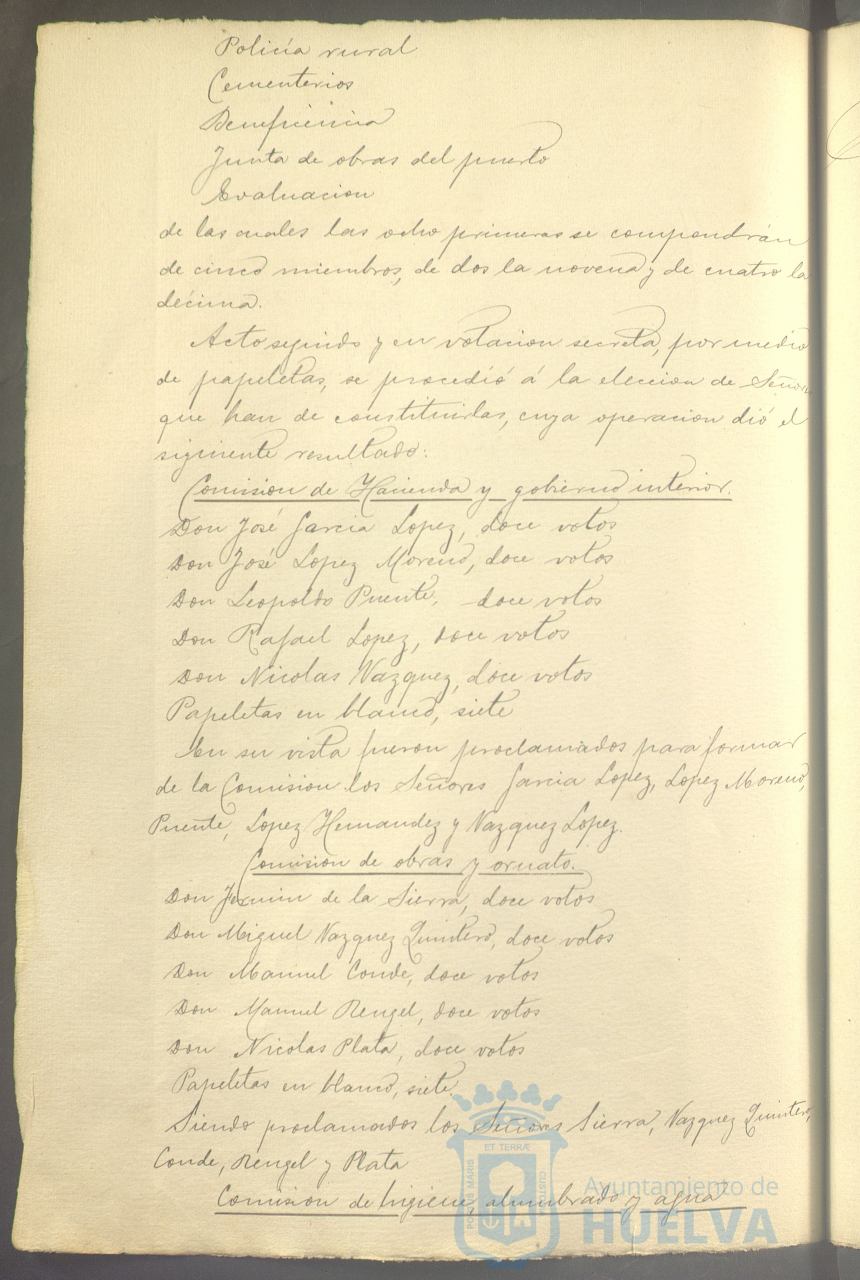 Policía rural
Cementerios
Beneficencia
Junta de obras del puerto
Evaluacion
de las cuales las ocho primeras se compondrán
de cinco miembros, de dos la novena y de cuatro la
décima.
Acto seguido y en votacion secreta, por medio
de papeletas, se procedió á la eleccion de Señores
que han de constituirlas, cuya operacion dió el
siguiente resultado:
Comision de Hacienda y gobierno interior.
Don José Garcia Lopez, doce votos
Don José Lopez Moreno, doce votos
Don Leopoldo Puente, doce votos
Don Rafael Lopez, doce votos
Don Nicolas Vazquez, doce votos
Papeletas en blanco, siete
En su vista fueron proclamados para formar
de la Comision los Señores Garcia Lopez, Lopez Moreno,
Puente, Lopez Hernandez y Vazquez Lopez.
Comision de obras y ornato.
Don Fermin de la Sierra, doce votos
Don Miguel Vazquez Quintero, doce votos
Don Manuel Conde, doce votos
Don Manuel Rengel, doce votos
Don Nicolas Plata, doce votos
Papeletas en blanco, siete
Siendo proclamados los Señores Sierra, Vazquez Quintero,
Conde, Rengel y Plata
Comision de higiene, alumbrado y agua
PORTUS MARIS ET TERRÆ CUSTODIA
Ayuntamiento de
HUELVA